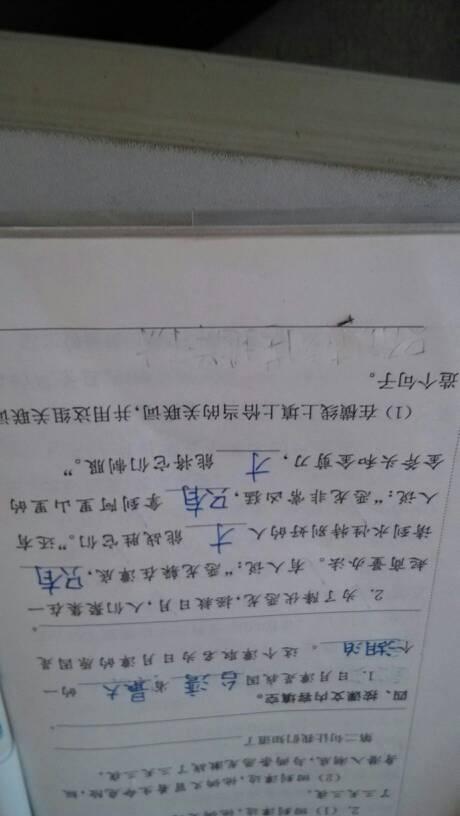 2. (1)
了三天三夜。
(2) 回到潭边,他俩又冒着生命危险,纵
身潜入潮底,与两条恶龙激战了三天三夜。
第二句让我们知道了
四、按课文内容填空。
1. 日月潭是我国台湾省最大的一
个湖泊。这个潭取名为日月潭的原因是
2. 为了降伏恶龙,拯救日月,人们聚集在一
起商量办法。有人说:“恶龙躲在潭底,只有
请到水性特别好的人才能战胜它们。”还有
人说:“恶龙非常凶猛,只有拿到阿里山里的
金斧头和金剪刀,才能将它们制服。”
(1) 在横线上填上恰当的关联词,并用这组关联词
造个句子。